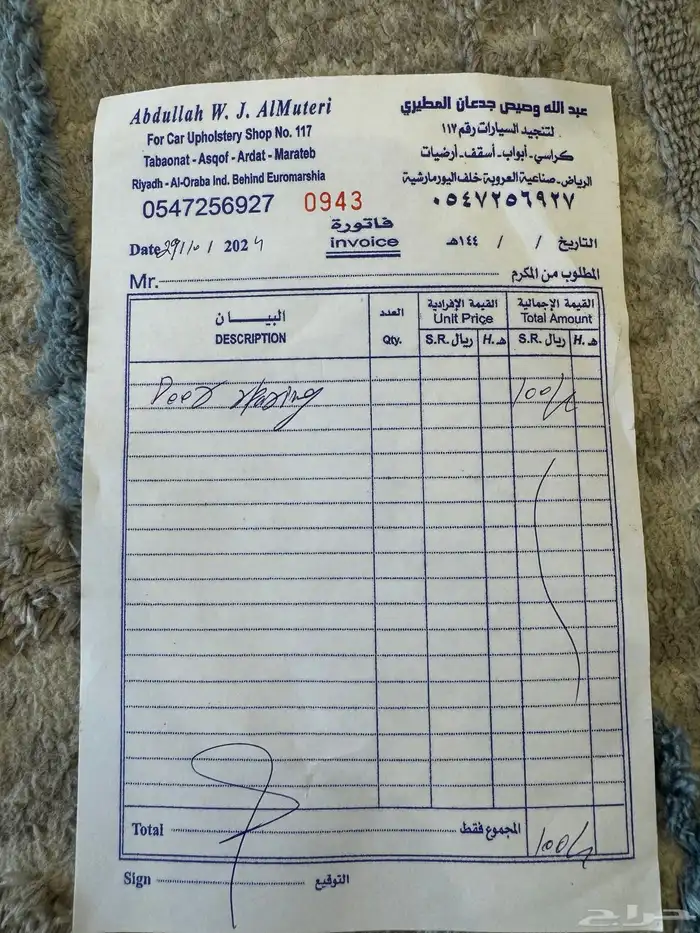 Abdullah W. J. AlMuteri
For Car Upholstery Shop No. 117
Tabaonat - Asqof - Ardat - Marateb
Riyadh - Al-Oraba Ind. Behind Euromarshia
0547256927
عبد الله وصيص جدعان المطيري
لتنجيد السيارات رقم ١١٧
كراسي - أبواب - أسقف - أرضيات
الرياض - صناعية العروبة خلف اليورمارشية
٠٥٤٧٢٥٦٩٢٧
0943
فاتورة
invoice
Date 29/10/2024
التاريخ / / ١٤٤هـ
Mr. المطلوب من المكرم
البيـــان العدد القيمة الإفرادية القيمة الإجمالية
DESCRIPTION Qty. Unit Price Total Amount
S.R. ريال H. هـ S.R. ريال H. هـ
Door 100/
Total المجموع فقط 100/
Sign التوقيع
حراج